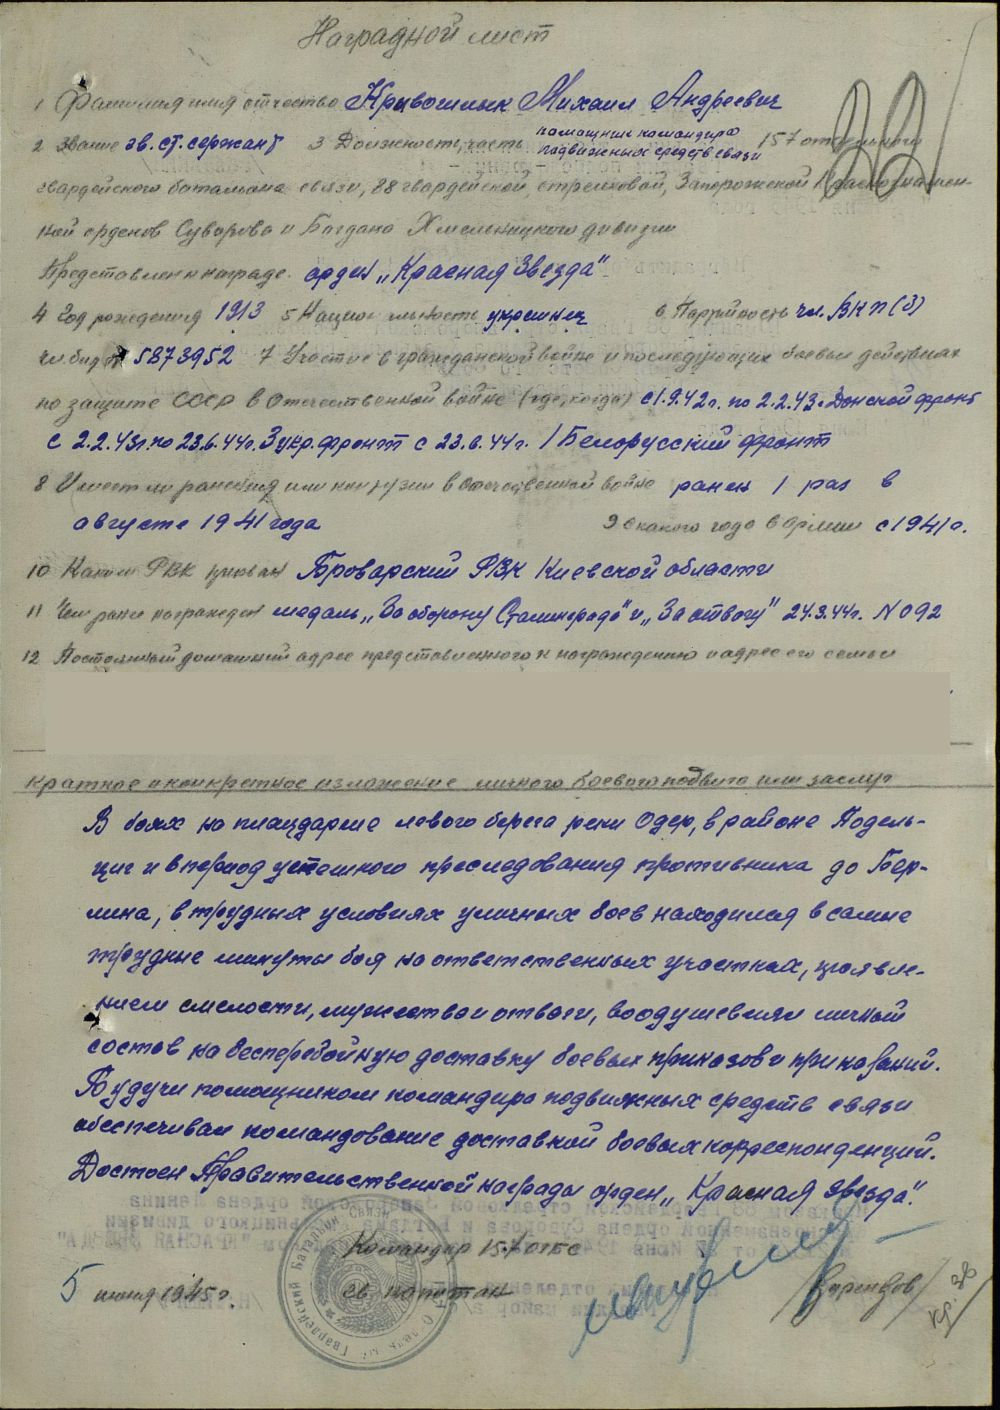 Наградной лист
1 Фамилия имя отчество Кривошлык Михаил Андреевич
2 Звание гв. ст. сержант 3 Должность, часть помощник командира
подвижных средств связи 157 отдельного
гвардейского батальона связи, 88 гвардейской, стрелковой, Запорожской Краснознамен-
ной орденов Суворова и Богдана Хмельницкого дивизии
Представлен к награде. орден „Красная Звезда"
4 Год рождения 1913 5 Национальность украинец 6 Партийность чл. ВКП(б)
чл. бил № 5873952 7 Участие в гражданской войне и последующих боевых действиях
по защите СССР в Отечественной войне (где, когда) с 1.9.42г. по 2.2.43г. Донской фронт
с 2.2.43г. по 23.6.44г. 3 укр. фронт с 23.6.44г. 1 Белорусский фронт
8 Имеет ли ранения или контузии в Отечественной войне ранен 1 раз в
августе 1941 года 9 с какого года в армии с 1941 г.
10 Каким РВК призван Броварский РВК Киевской области
11 Чем ранее награжден медаль „За оборону Сталинграда" и „За отвагу" 24.3.44г. N 092
12 Постоянный домашний адрес представленного к награждению и адрес его семьи
Краткое и конкретное изложение личного боевого подвига или заслуг
В боях на плацдарме левого берега реки Одер, в районе Подель-
циг и в период успешного преследования противника до Бер-
лина, в трудных условиях уличных боев находился в самые
трудные минуты боя на ответственных участках, проявле-
нием смелости, мужества и отваги, воодушевлял личный
состав на бесперебойную доставку боевых приказов и приказаний.
Будучи помощником командира подвижных средств связи
обеспечивал командование доставкой боевых корреспонденций.
Достоен Правительственной награды орден „Красная звезда".
Командир 157 огбс
гв. капитан
5 июня 1945 г.